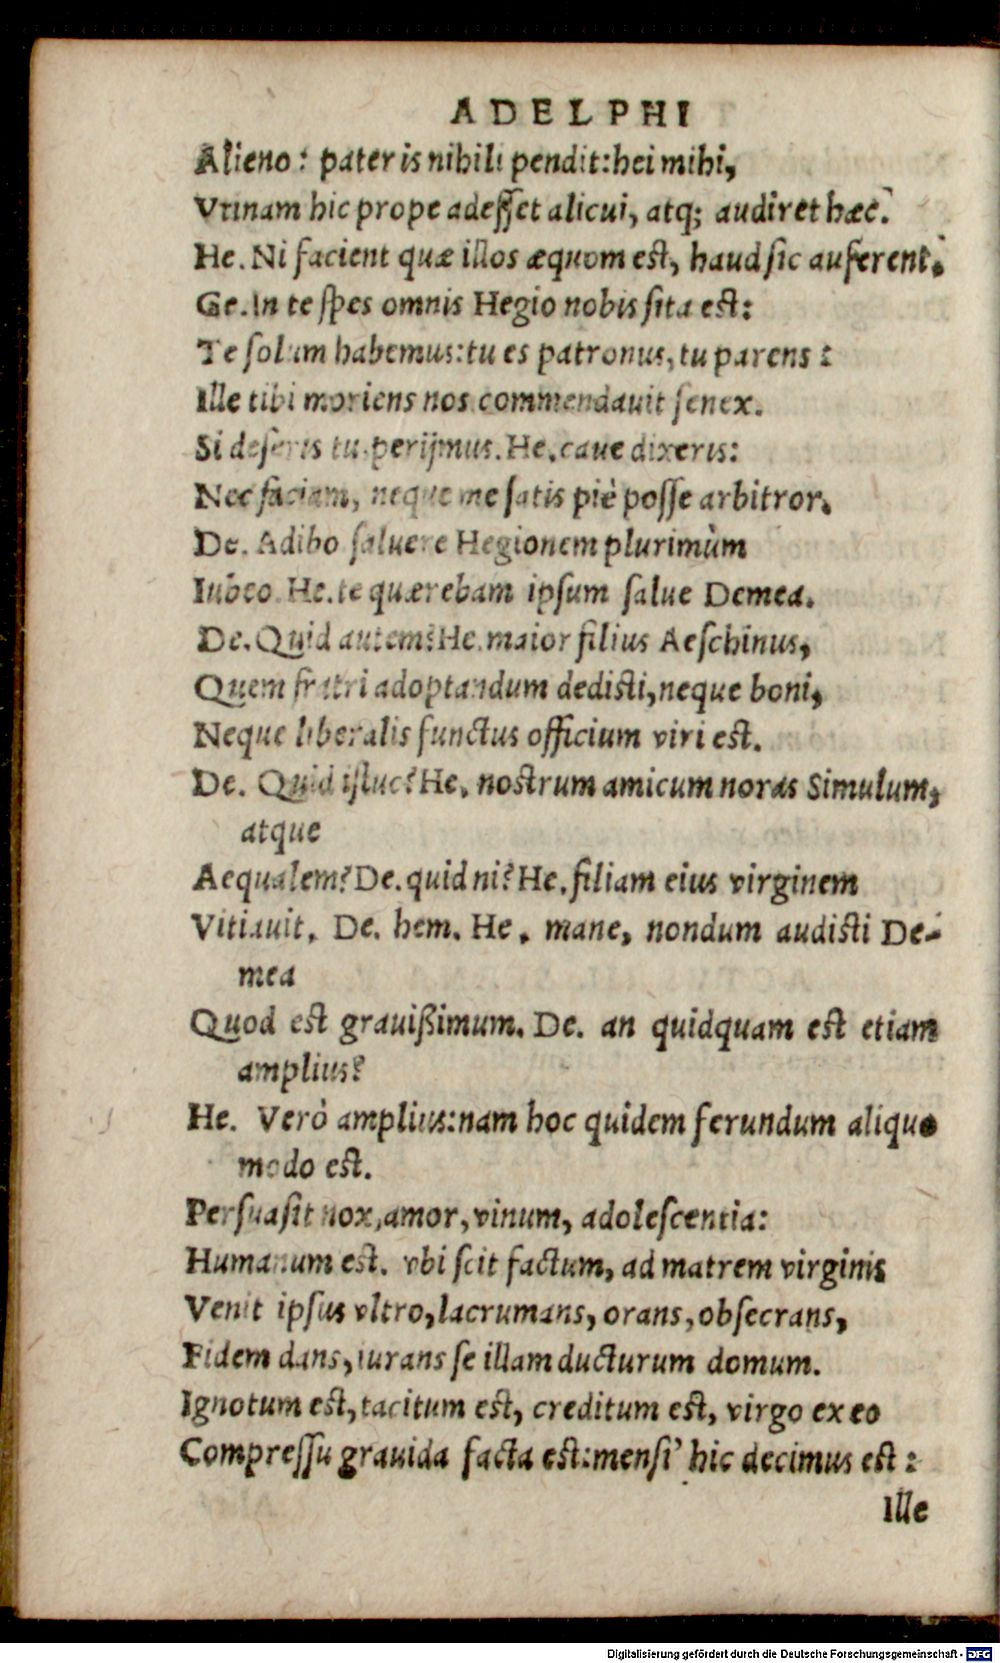 ADELPHI
Alieno: pater is nihili pendit: hei mihi,
Vtinam hic prope adesset alicui, atq; audiret hæc.
He. Ni facient quæ illos æquom est, haud sic auferent.
Ge. In te spes omnis Hegio nobis sita est:
Te solum habemus: tu es patronus, tu parens:
Ille tibi moriens nos commendauit senex.
Si deseris tu perijmus. He. caue dixeris:
Nec faciam, neque me satis piè posse arbitror.
De. Adibo saluere Hegionem plurimùm
Iubeo. He. te quærebam ipsum salue Demea.
De. Quid autem? He. maior filius Aeschinus,
Quem fratri adoptandum dedisti, neque boni,
Neque liberalis functus officium viri est.
De. Quid istuc? He. nostrum amicum noras Simulum,
atque
Aequalem? De. quid ni? He. filiam eius virginem
Vitiauit. De. hem. He. mane, nondum audisti De-
mea
Quod est grauißimum. De. an quidquam est etiam
amplius?
He. Verò amplius: nam hoc quidem ferundum aliquo
modo est.
Persuasit nox, amor, vinum, adolescentia:
Humanum est. vbi scit factum, ad matrem virginis
Venit ipsus vltro, lacrumans, orans, obsecrans,
Fidem dans, iurans se illam ducturum domum.
Ignotum est, tacitum est, creditum est, virgo ex eo
Compressu grauida facta est: mensi' hic decimus est:
Ille
Digitalisierung gefördert durch die Deutsche Forschungsgemeinschaft - DFG